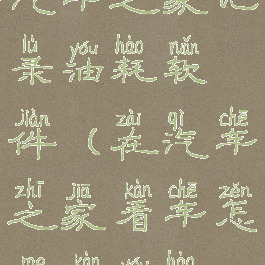 汽车之家记
lù yóu hào ruǎn
录油耗软
jiàn zài qì chē
件（在汽车
zhī jiā kàn chē zěn
之家看车怎
me kàn yóu hào